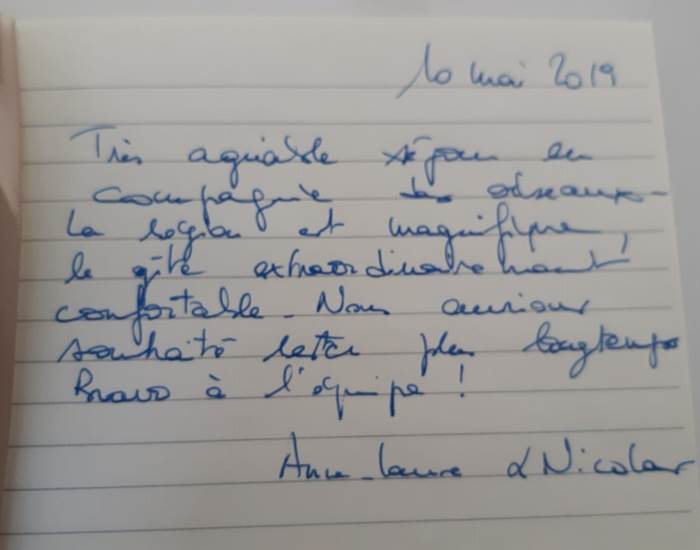 10 mai 2019
Très agréable séjour en
compagnie des oiseaux.
La région est magnifique,
le gîte extraordinairement
confortable. Nous aurions
souhaité rester plus longtemps
Bravo à l'équipe !
Anne-Laure & Nicolas